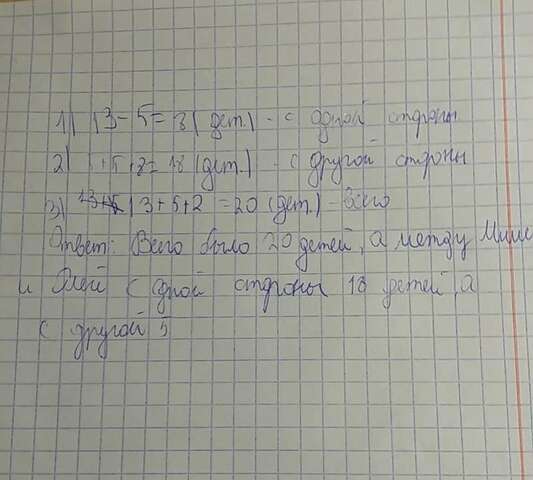 1) 13 - 5 = 8 (дет.) - с одной стороны
2) +5+ = 18 (дет.) - с другой стороны
3) 13+5 13+5+2 = 20 (дет.) - Всего
Ответ: Всего было 20 детей, а между Мише
и Олей с дной стороны 18 детей, а
с другой 5